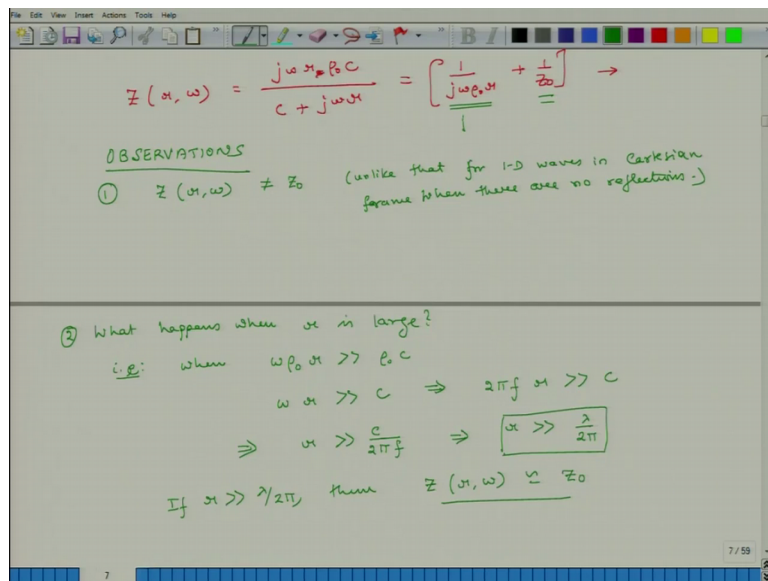 File Edit View Insert Actions Tools Help
Z(r, ω) = jωr ρ₀c / (c + jωr) = [1/(jωρ₀r) + 1/Z₀] →
OBSERVATIONS
① Z(r, ω) ≠ Z₀ (unlike that for 1-D waves in Cartesian
frame when there are no reflections.)
② What happens when r is large?
i.e: when ωρ₀r >> ρ₀c
ωr >> c ⇒ 2πf r >> c
⇒ r >> c/2πf ⇒ r >> λ/2π
If r >> λ/2π, then Z(r, ω) ≃ Z₀
7/59
7